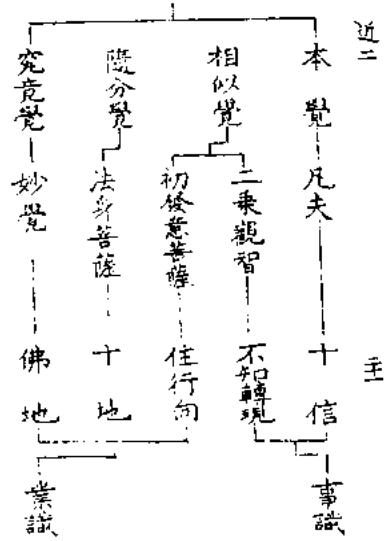 近二
本覺
凡夫
十信
相似覺
二乘觀智
不知轉現
初發意菩薩
住行向
隨分覺
法身菩薩
十地
究竟覺
妙覺
佛地
事識
業識